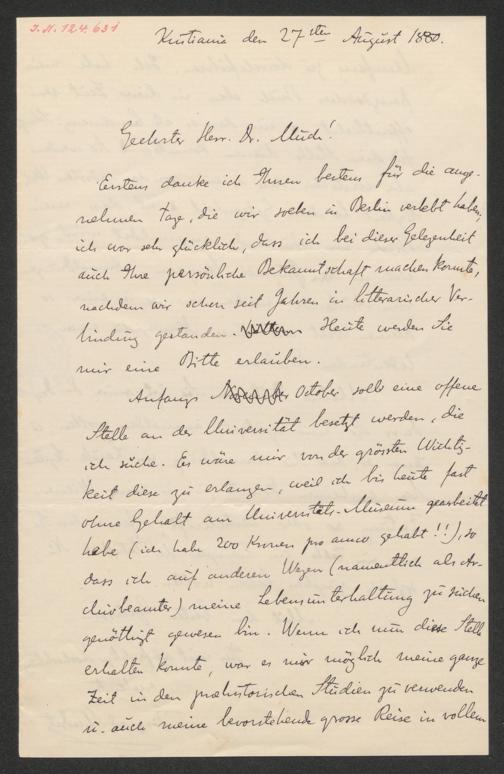 J.N. 124.631
Kristiania den 27sten August 1880.
Geehrter Herr Dr. Much!
Erstens danke ich Ihnen bestens für die ange-
nehmen Tage, die wir soeben in Berlin verlebt haben;
ich war sehr glücklich, dass ich bei dieser Gelegenheit
auch Ihre persönliche Bekanntschaft machen konnte,
nachdem wir schon seit Jahren in litterarischer Ver-
bindung gestanden. Heute werden Sie
mir eine Bitte erlauben.
Anfangs October soll eine offene
Stelle an der Universität besetzt werden, die
ich suche. Es wäre mir von der grössten Wichtig-
keit diese zu erlangen, weil ich bis heute fast
ohne Gehalt am Universitets-Museum gearbeitet
habe (ich habe 200 Kronen pro anno gehabt!!), so
dass ich auf anderen Wegen (namentlich als Ar-
chivbeamter) meine Lebensunterhaltung zu suchen
genöthigt gewesen bin. Wenn ich nun diese Stelle
erhalten konnte, war es mir möglich meine ganze
Zeit in den præhistorischen Studien zu verwenden
u. auch meine bevorstehende grosse Reise in vollem